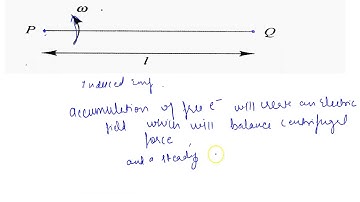 ω
P Q
l
Induced Emf.
accumulation of free e⁻ will create an Electric
field which will balance centrifugal
force,
and a steady